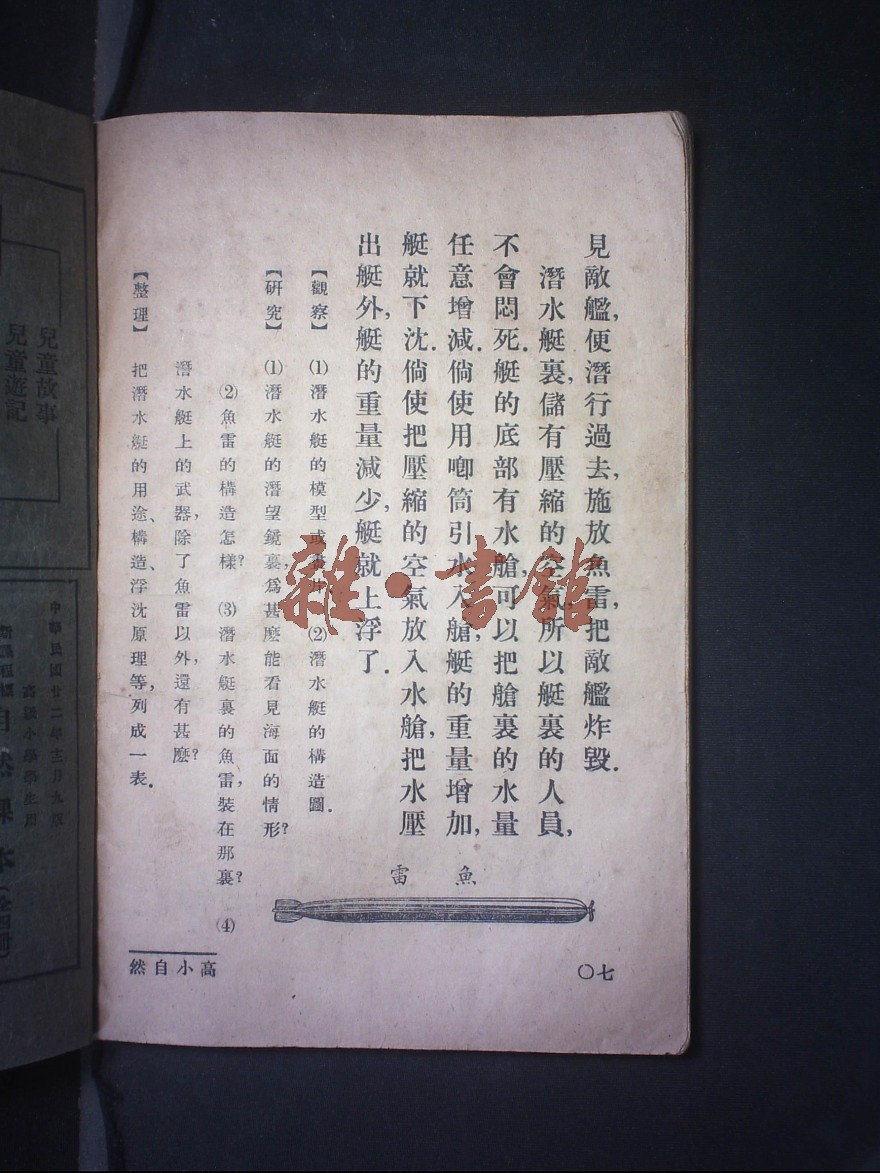 見敵艦,便潛行過去,施放魚雷,把敵艦炸毀.
潛水艇裏,儲有壓縮的空氣,所以艇裏的人員,
不會悶死.艇的底部有水艙,可以把艙裏的水量
任意增減.倘使用喞筒引水入艙,艇的重量增加,
艇就下沈.倘使把壓縮的空氣放入水艙,把水壓
出艇外,艇的重量減少,艇就上浮了.
【觀察】 ⑴潛水艇的模型或 ⑵潛水艇的構造圖.
【研究】 ⑴潛水艇的潛望鏡裏,爲甚麽能看見海面的情形?
⑵魚雷的構造怎樣? ⑶潛水艇裏的魚雷,裝在那裏? ⑷
潛水艇上的武器,除了魚雷以外,還有甚麽?
【整理】 把潛水艇的用途、構造、浮沈原理等,列成一表.
雷魚
然自小高
〇七
雜·書館
兒童故事
兒童遊記
中華民國廿二年十二月九版
高級小學學生用
自然課本